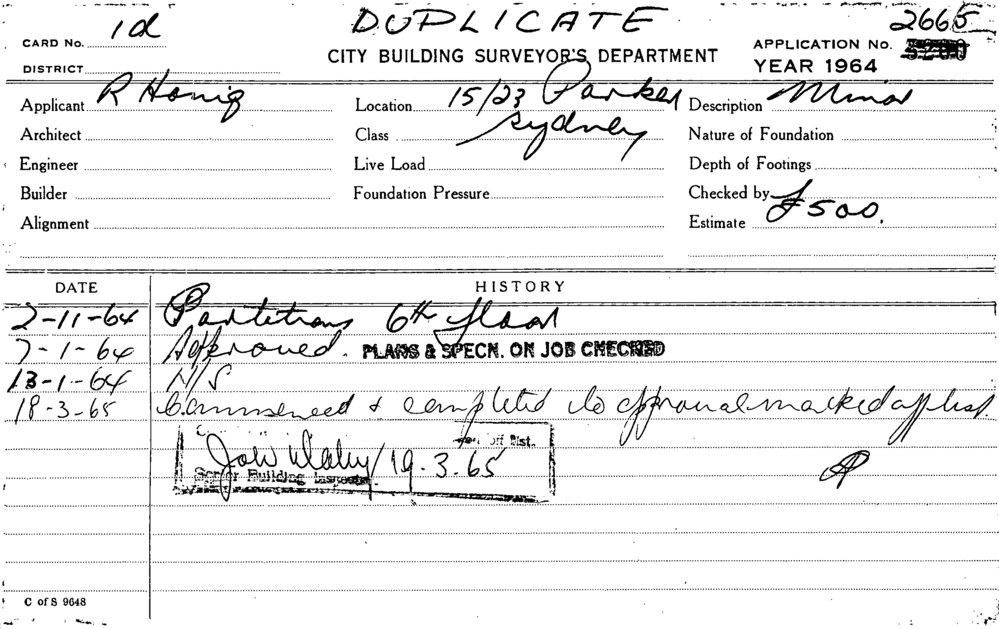 DUPLICATE
CARD No. 1d
CITY BUILDING SURVEYOR'S DEPARTMENT
APPLICATION No. 2665
DISTRICT
YEAR 1964
Applicant R Honig
Location 15/23 Parker
Description Minor
Architect
Class Sydney
Nature of Foundation
Engineer
Live Load
Depth of Footings
Builder
Foundation Pressure
Checked by
Alignment
Estimate £500.
DATE HISTORY
2-11-64 Partitions 6th floor
7-1-64 Approved. PLANS & SPECN. ON JOB CHECKED
13-1-64 N/S
18-3-65 Commenced & completed to approval marked off list.
off list.
19-3-65
Senior Building Inspector
C of S 9648